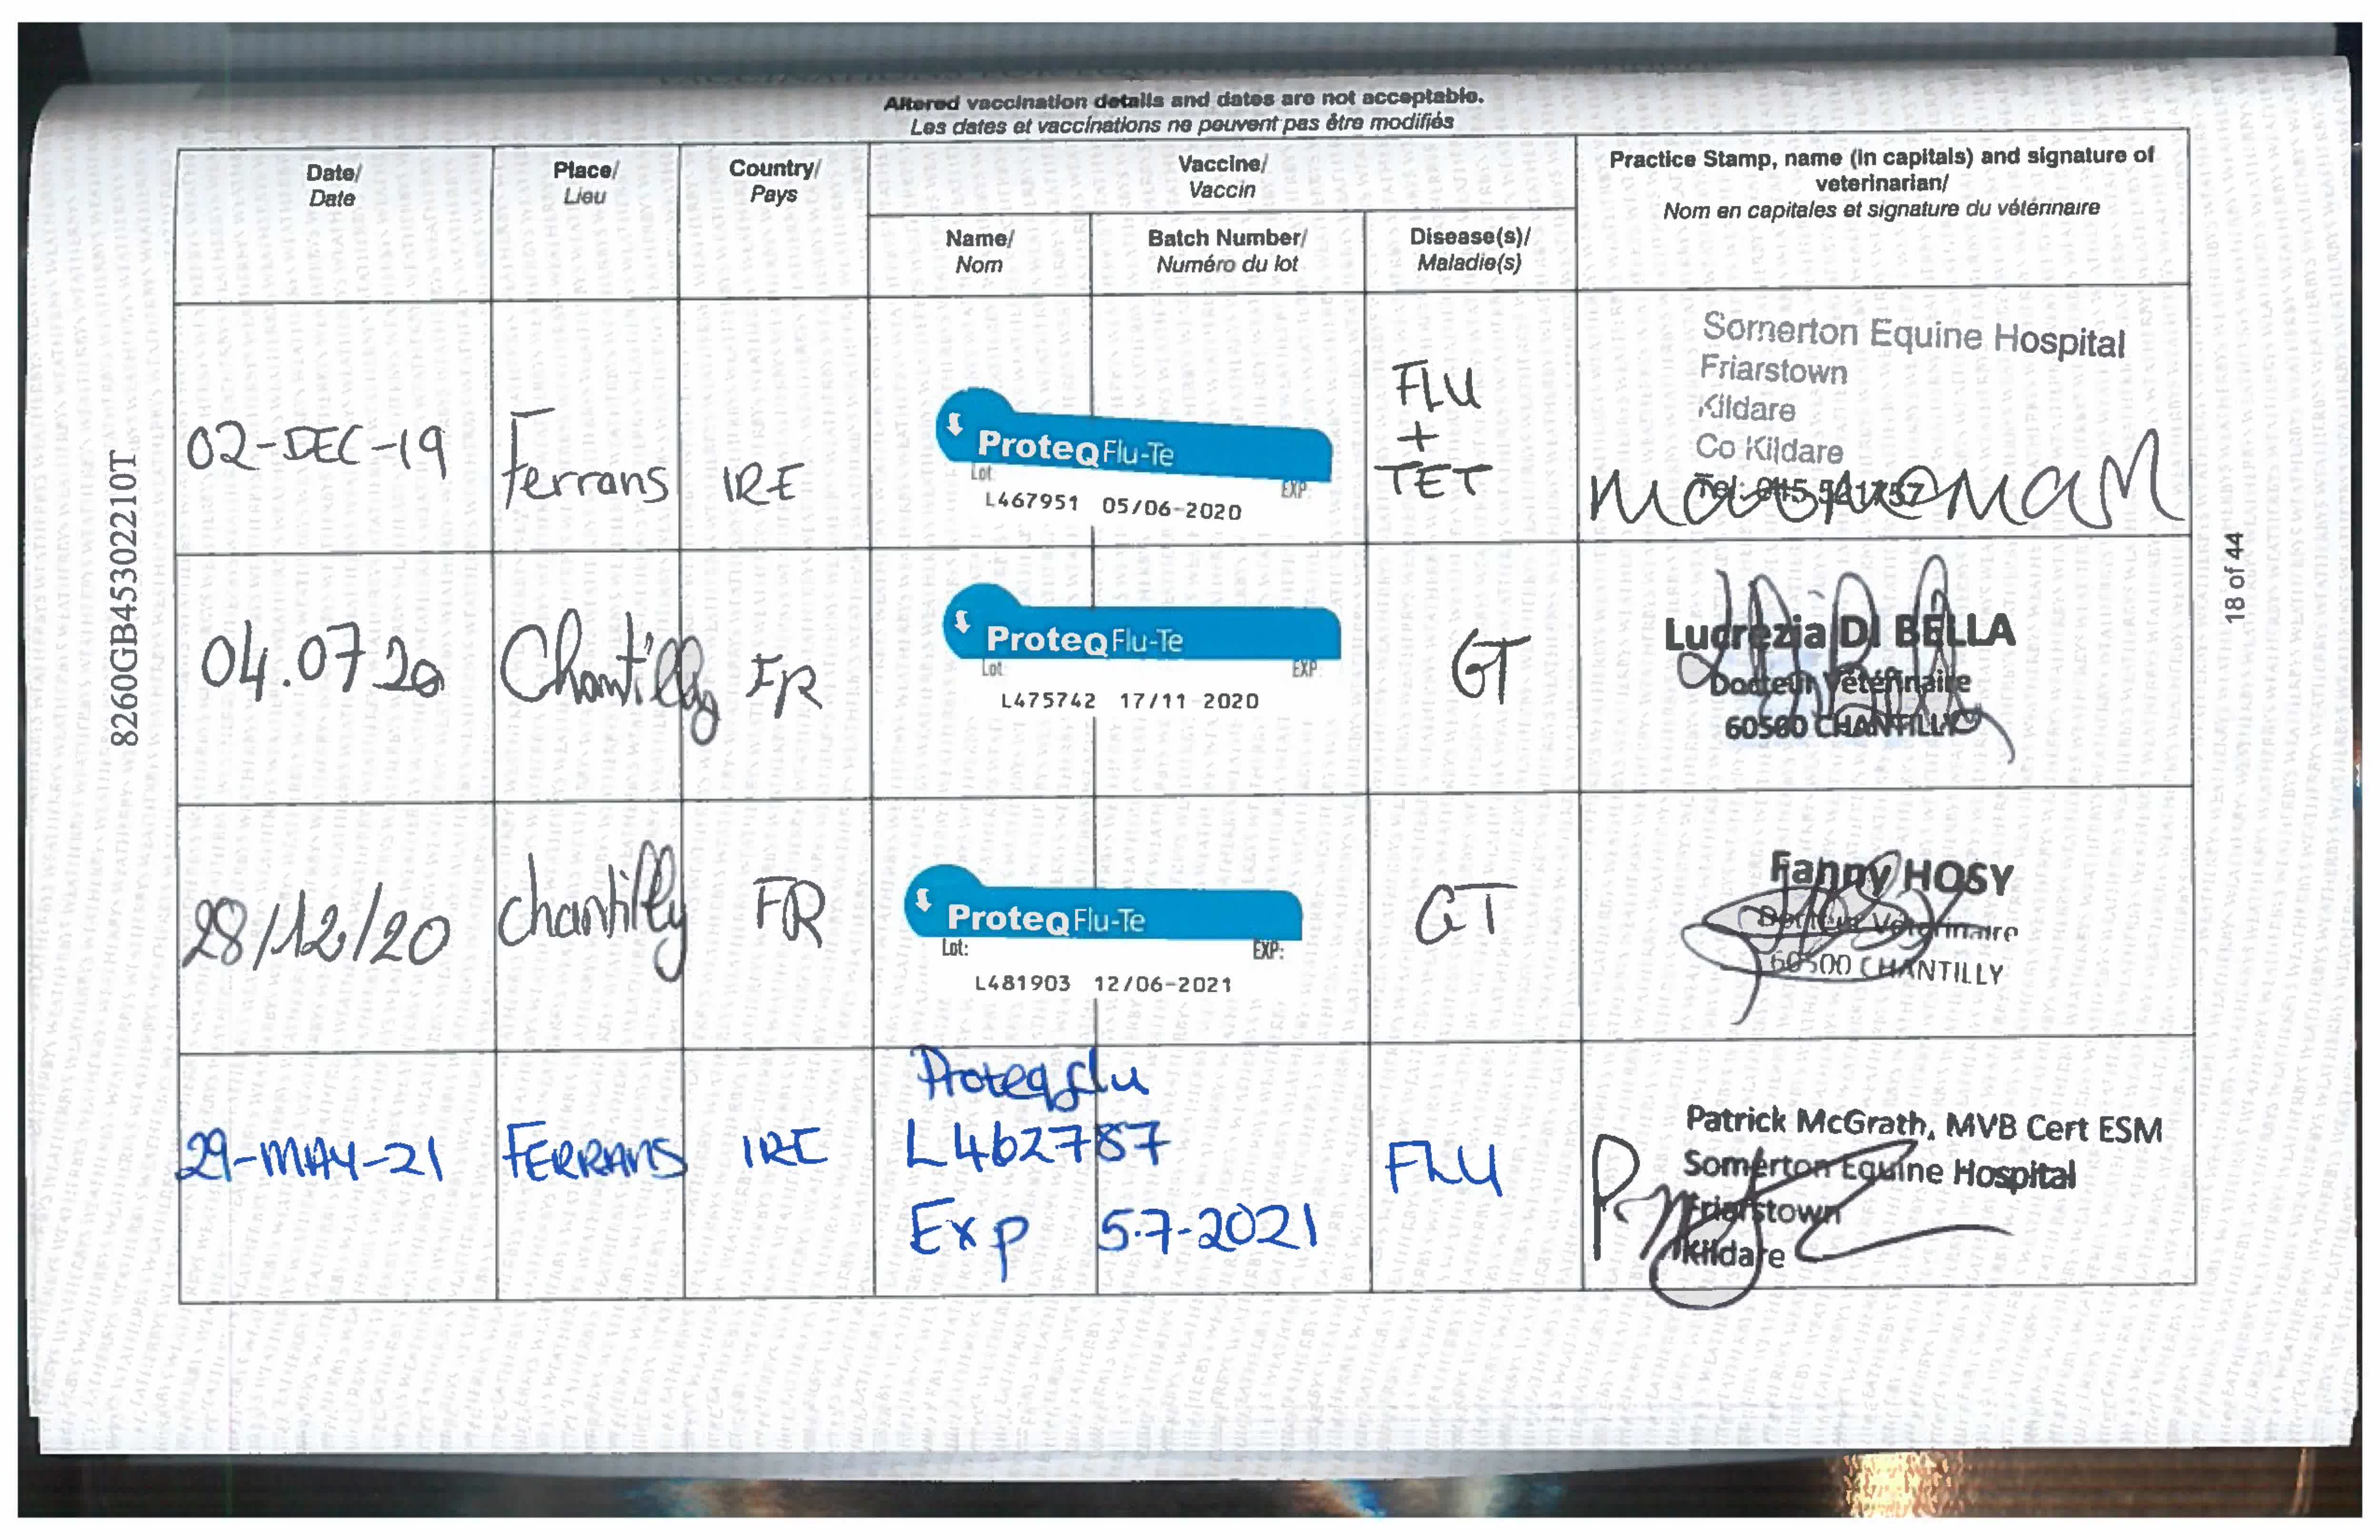 Altered vaccination details and dates are not acceptable.
Les dates et vaccinations ne peuvent pas être modifiés
Date/
Date
Place/
Lieu
Country/
Pays
Vaccine/
Vaccin
Name/
Nom
Batch Number/
Numéro du lot
Disease(s)/
Maladie(s)
Practice Stamp, name (in capitals) and signature of
veterinarian/
Nom en capitales et signature du vétérinaire
02-DEC-19
Ferrans
IRE
ProteqFlu-Te
Lot
EXP
L467951 05/06-2020
FLU
+
TET
Somerton Equine Hospital
Friarstown
Kildare
Co Kildare
Tel: 045
04.07 20
Chantilly
FR
ProteqFlu-Te
Lot
EXP
L475742 17/11 2020
GT
Lucrezia DI BELLA
Docteur Vétérinaire
60500 CHANTILLY
28/12/20
chantilly
FR
ProteqFlu-Te
Lot:
EXP:
L481903 12/06-2021
GT
Fanny HOSY
Docteur Vétérinaire
60500 CHANTILLY
29-MAY-21
FERRANS
IRE
Proteqflu
L462787
Exp 5.7-2021
FLU
Patrick McGrath, MVB Cert ESM
Somerton Equine Hospital
Friarstown
Kildare
8260GB45302210T
18 of 44